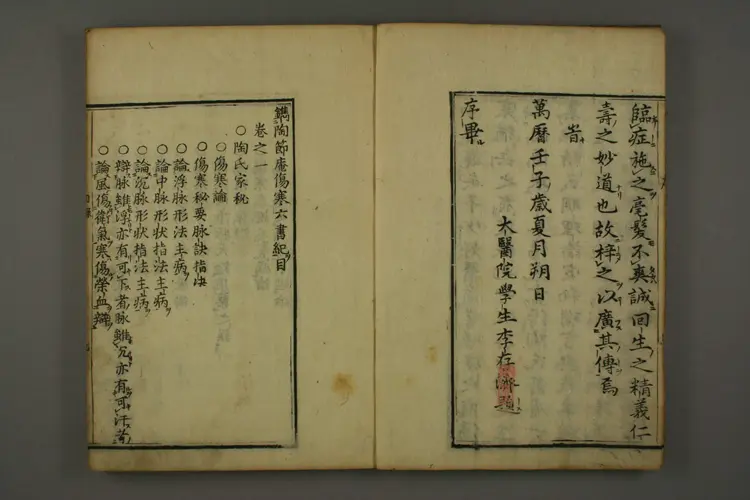 臨症施之毫髮不爽誠回生之精義仁
壽之妙道也故梓之以廣其傳焉
旹
萬曆壬子歲夏月朔日
太醫院學生李存濟題
序畢
鐫陶節庵傷寒六書綱目
卷之一
○陶氏家秘
○傷寒論
○傷寒秘要脉訣指法
○論浮脉形法主病
○論中脉形狀指法主病
○論沉脉形狀指法主病
○辯脉雖浮亦有可下者脉雖沉亦有可汗者
○論風傷衛氣寒傷榮血辯